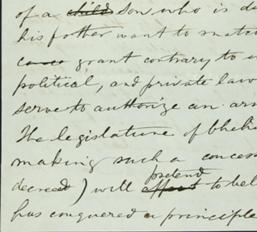 of a child son who is d
his father want to mat
grant contrary to
political, and private law
serve to authorize an ar
The legislature of
making such a conces
decreed) will pretend to bel
has conquered a principle